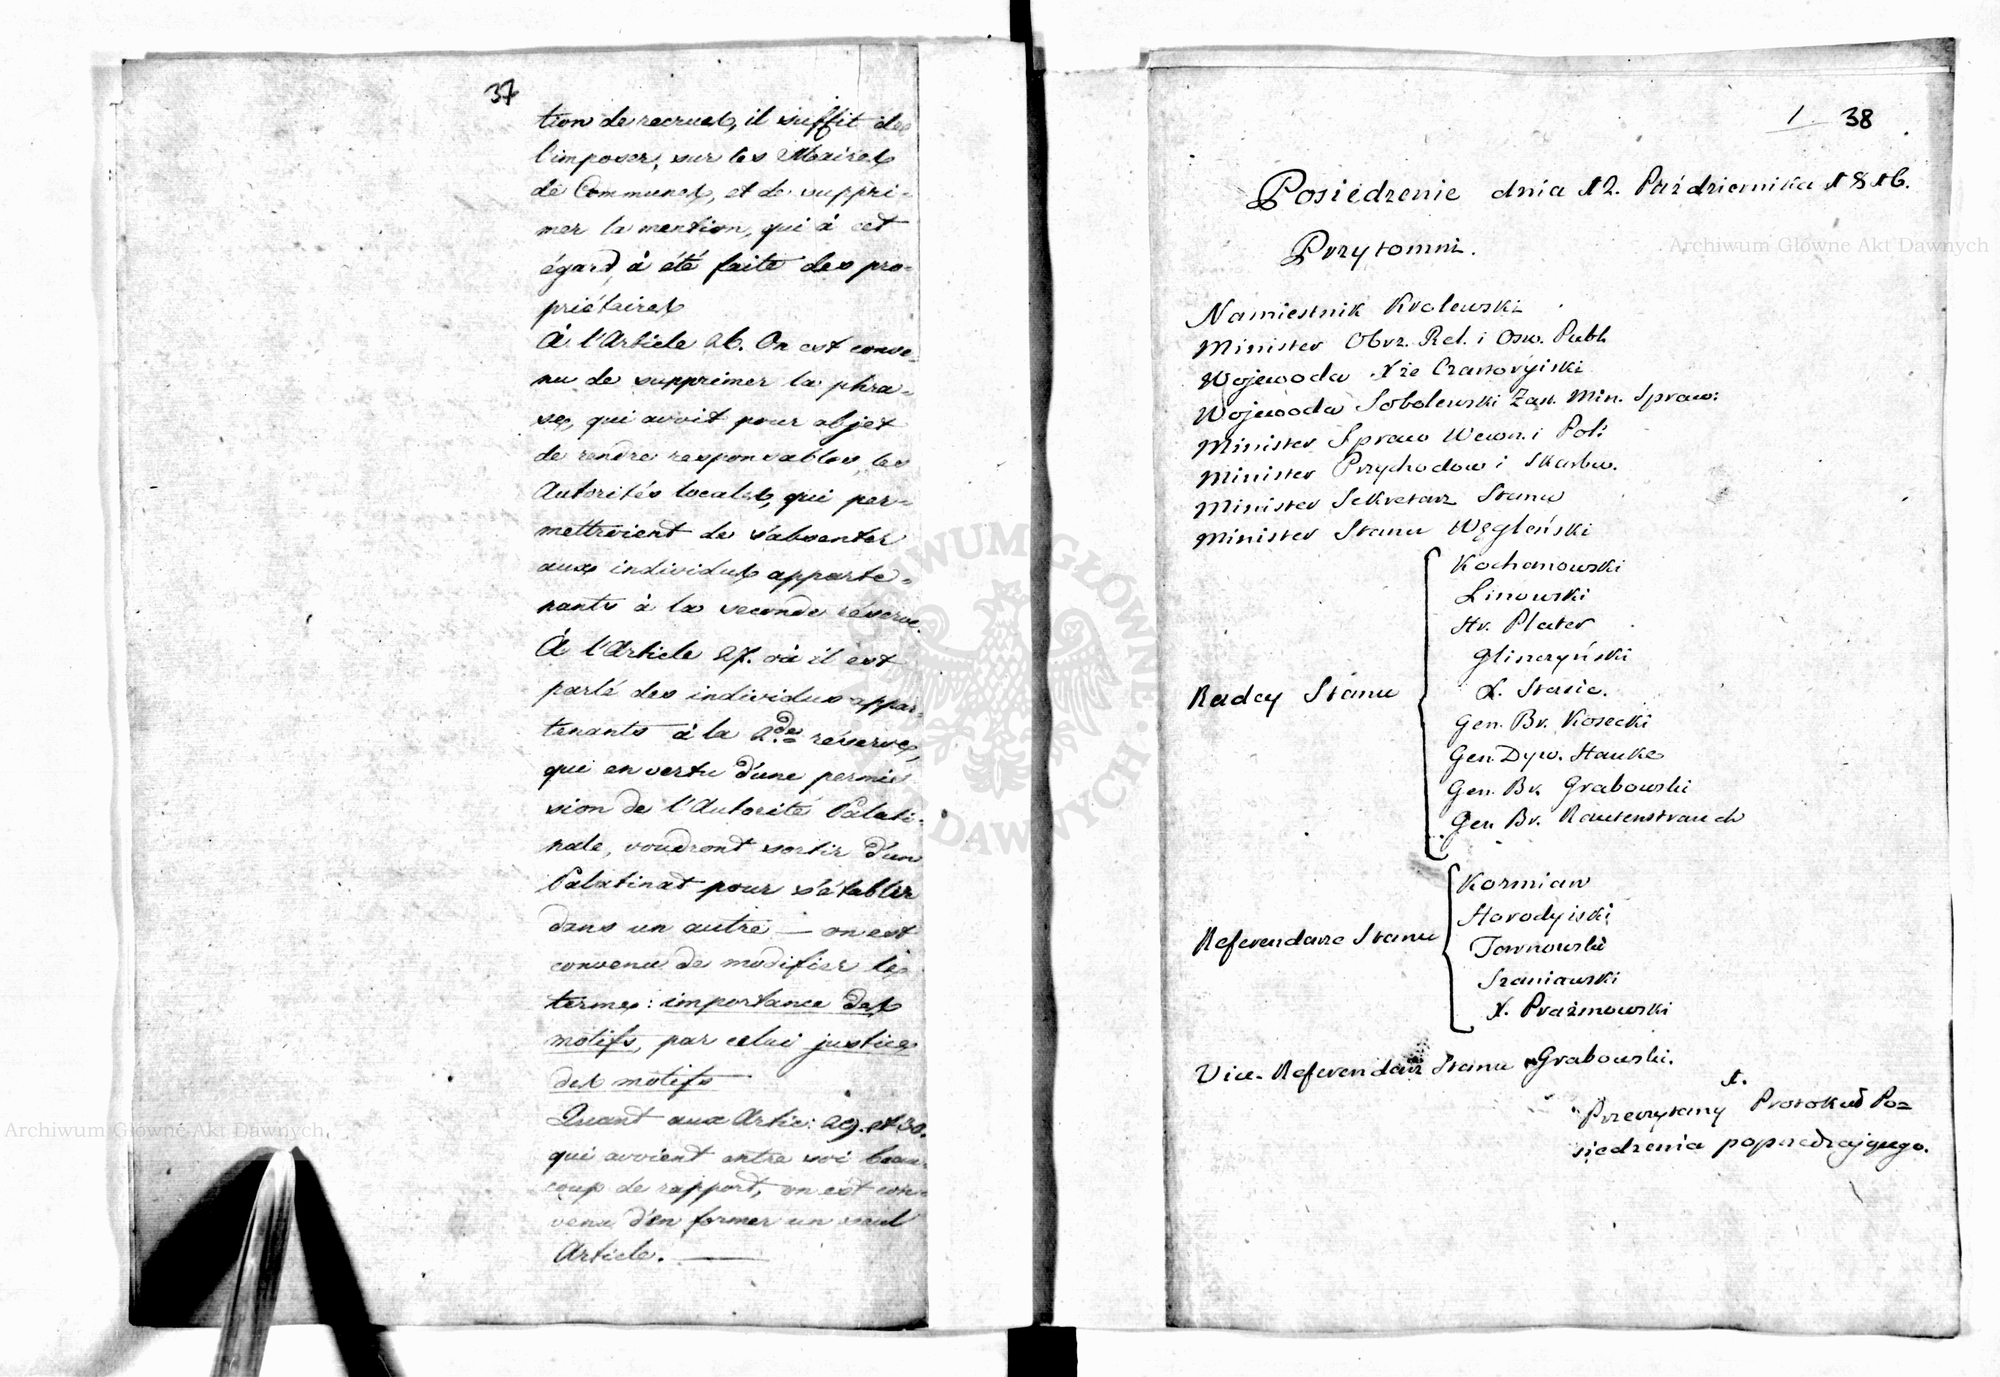 37
tion de recrues, il suffit de
l'imposer, sur les Maires
de Communes, et de suppri-
mer la mention, qui à cet
égard, à été faite des pro-
priétaires
À l'Article 26. On est conve-
nu de supprimer la phra-
se, qui avoit pour objet
de rendre responsables les
Autorités locales, qui per-
mettroient de s'absenter
aux individus apparte-
nants à la seconde réserve.
À l'Article 27. où il est
parlé des individus appar-
tenants à la 2de réserve,
qui en vertu d'une permis
sion de l'Autorité Palati-
nale, voudront sortir d'un
Palatinat pour s'établir
dans un autre — on est
convenu de modifier les
termes: importance des
motifs, par celui justice
des motifs
Quant aux Artic: 29. et 30.
qui avoient entre soi beau-
coup de rapport, on est con-
venu d'en former un seul
Article. —
1. 38
Posiedzenie dnia 12. Października 1816.
Przytomni.
Namiestnik Krolewski
Minister Obrz. Rel. i Osw. Publ.
Wojewoda Xże Czartoryiski
Wojewoda Sobolewski Zas. Min. Spraw:
Minister Spraw Wewn. i Pol:
Minister Przychodow i Skarbu.
Minister Sekretarz Stanu
Minister Stanu Węgleński
Radcy Stanu
Kochanowski
Linowski
Hr. Plater
Gliszczyński
X. Stasic.
Gen. Br. Kosecki
Gen. Dyw. Hauke
Gen. Br. Grabowski
Gen. Br. Rautenstrauch
Referendarze Stanu
Kozmian
Horodyiski
Tarnowski
Szaniawski
X. Prażmowski
Vice-Referendarz Stanu Grabowski.
1.
Przeczytany Protokuł Po=
siedzenia poprzedzaiącego.
Archiwum Główne Akt Dawnych
Archiwum Główne Akt Dawnych
ARCHIWUM GŁÓWNE AKT DAWNYCH